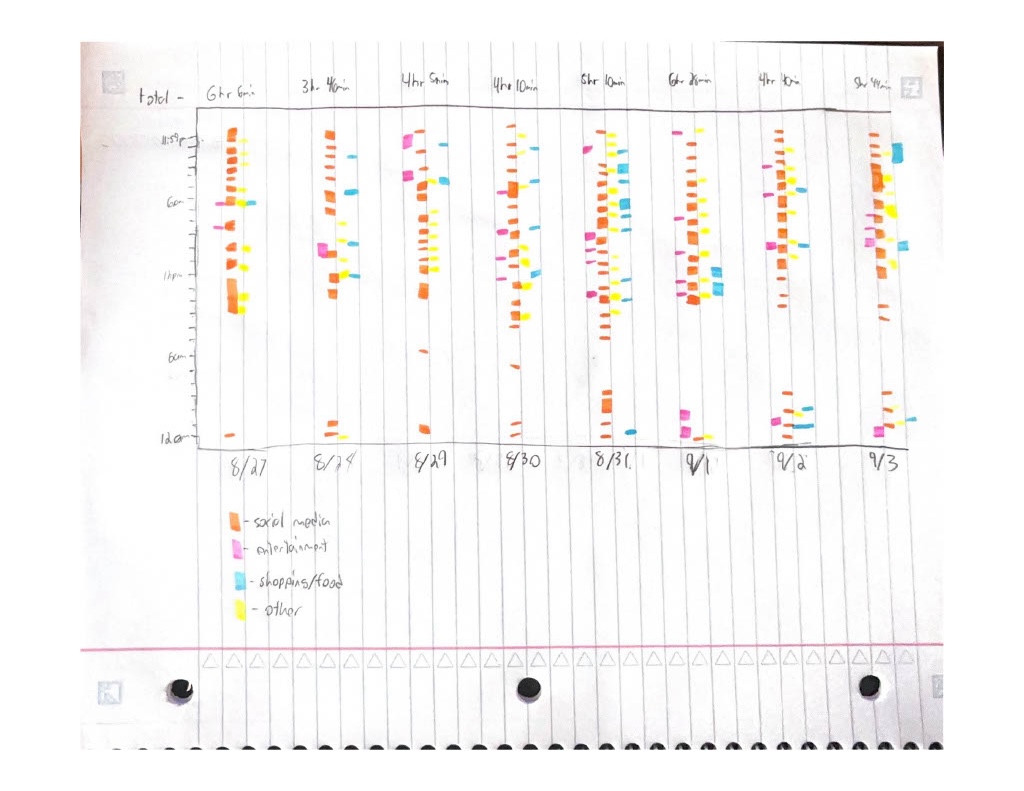 total - 6hr 6min 3hr 46min 4hr 5min 4hr 10min 5hr 10min 6hr 26min 4hr 40min 5hr 44min
11:59p
6pm
12pm
6am
12am
8/27 8/28 8/29 8/30 8/31 9/1 9/2 9/3
- social media
- entertainment
- shopping/food
- other